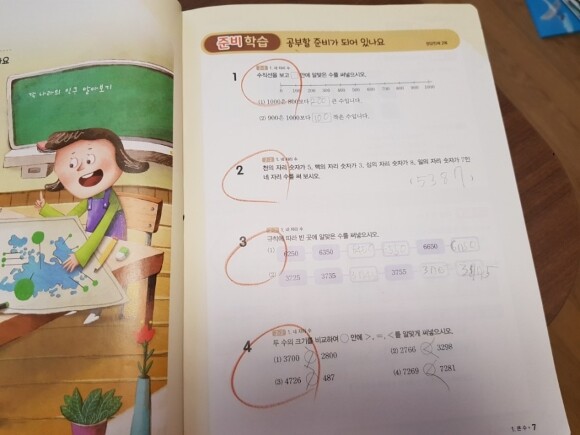 각 나라의 인구 알아보기
준비학습 공부할 준비가 되어 있나요
1 1. 네 자리 수
수직선을 보고 안에 알맞은 수를 써넣으시오.
0 100 200 300 400 500 600 700 800 900 1000
(1) 1000은 800보다 200 큰 수입니다.
(2) 900은 1000보다 100 작은 수입니다.
2 1. 네 자리 수
천의 자리 숫자가 5, 백의 자리 숫자가 3, 십의 자리 숫자가 8, 일의 자리 숫자가 7인
네 자리 수를 써 보시오.
5387
3 1. 네 자리 수
규칙에 따라 빈 곳에 알맞은 수를 써넣으시오.
(1) 6250 6350 6650
(2) 3725 3735 3755
4 1. 네 자리 수
두 수의 크기를 비교하여 ○ 안에 >, =, <를 알맞게 써넣으시오.
(1) 3700 2800 (2) 2766 < 3298
(3) 4726 487 (4) 7269 < 7281
7